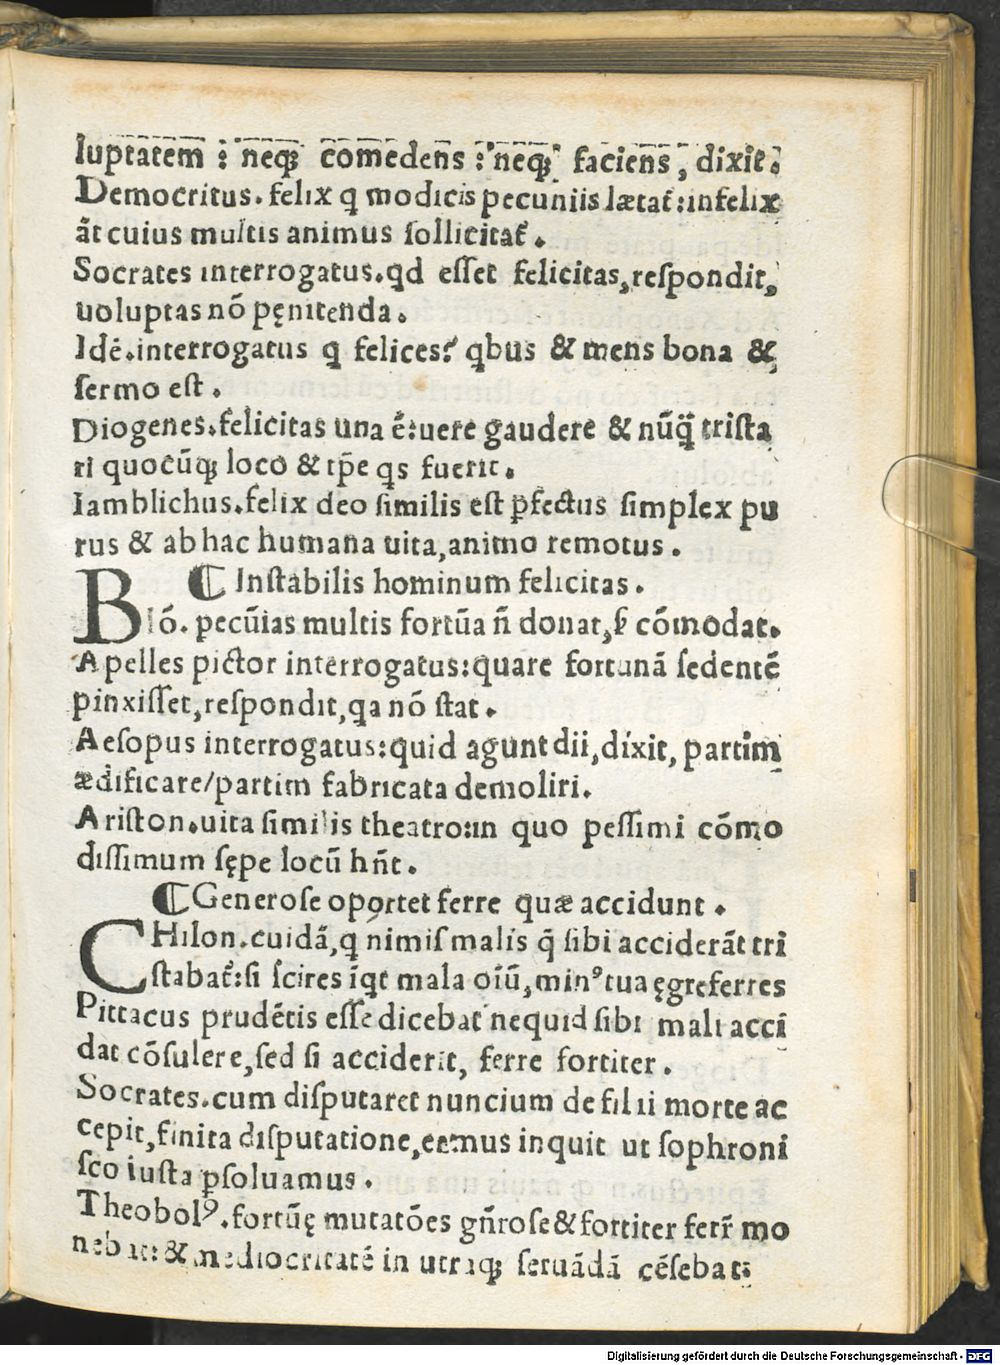 luptatem : neqꝫ comedens : neqꝫ faciens, dixit.
Democritus. felix q modicis pecuniis lætat᷑: infelix
āt cuius multis animus ſollicitat᷑.
Socrates interrogatus. qd eſſet felicitas, reſpondit,
uoluptas nō pęnitenda.
Idē. interrogatus q felices? qbus & mens bona &
ſermo eſt.
Diogenes. felicitas una ē: uere gaudere & nūq̄ triſta
ri quocūqꝫ loco & tp̄e qs fuerit.
Iamblichus. felix deo ſimilis eſt ꝑfectus ſimplex pu
rus & ab hac humana uita, animo remotus.
⸿ Inſtabilis hominum felicitas.
Biō. pecūias multis fortūa ñ donat, ſꝫ cōmodat.
Apelles pictor interrogatus: quare fortunā ſedentē
pinxiſſet, reſpondit, qa nō ſtat.
Aeſopus interrogatus: quid agunt dii, dixit, partim
ædificare/partim fabricata demoliri.
Ariſton. uita ſimilis theatro: in quo peſſimi cōmo
diſſimum ſępe locū hñt.
⸿ Generoſe oportet ferre quæ accidunt.
CHilon. cuidā, q nimiſ malis q̄ ſibi acciderāt tri
ſtabat᷑: ſi ſcires īqt mala oīū, minꝰ tua ęgreferres
Pittacus prudētis eſſe dicebat nequid ſibi mali acci
dat cōſulere, ſed ſi acciderit, ferre fortiter.
Socrates. cum diſputaret nuncium de filii morte ac
cepit, finita diſputatione, eamus inquit ut ſophroni
ſco iuſta ꝑſoluamus.
Theobolꝰ. fortūę mutatōes gñroſe & fortiter ferr̄ mo
nebat: & mediocritatē in utraqꝫ ſeruādā cēſebat:
Digitalisierung gefördert durch die Deutsche Forschungsgemeinschaft - DFG